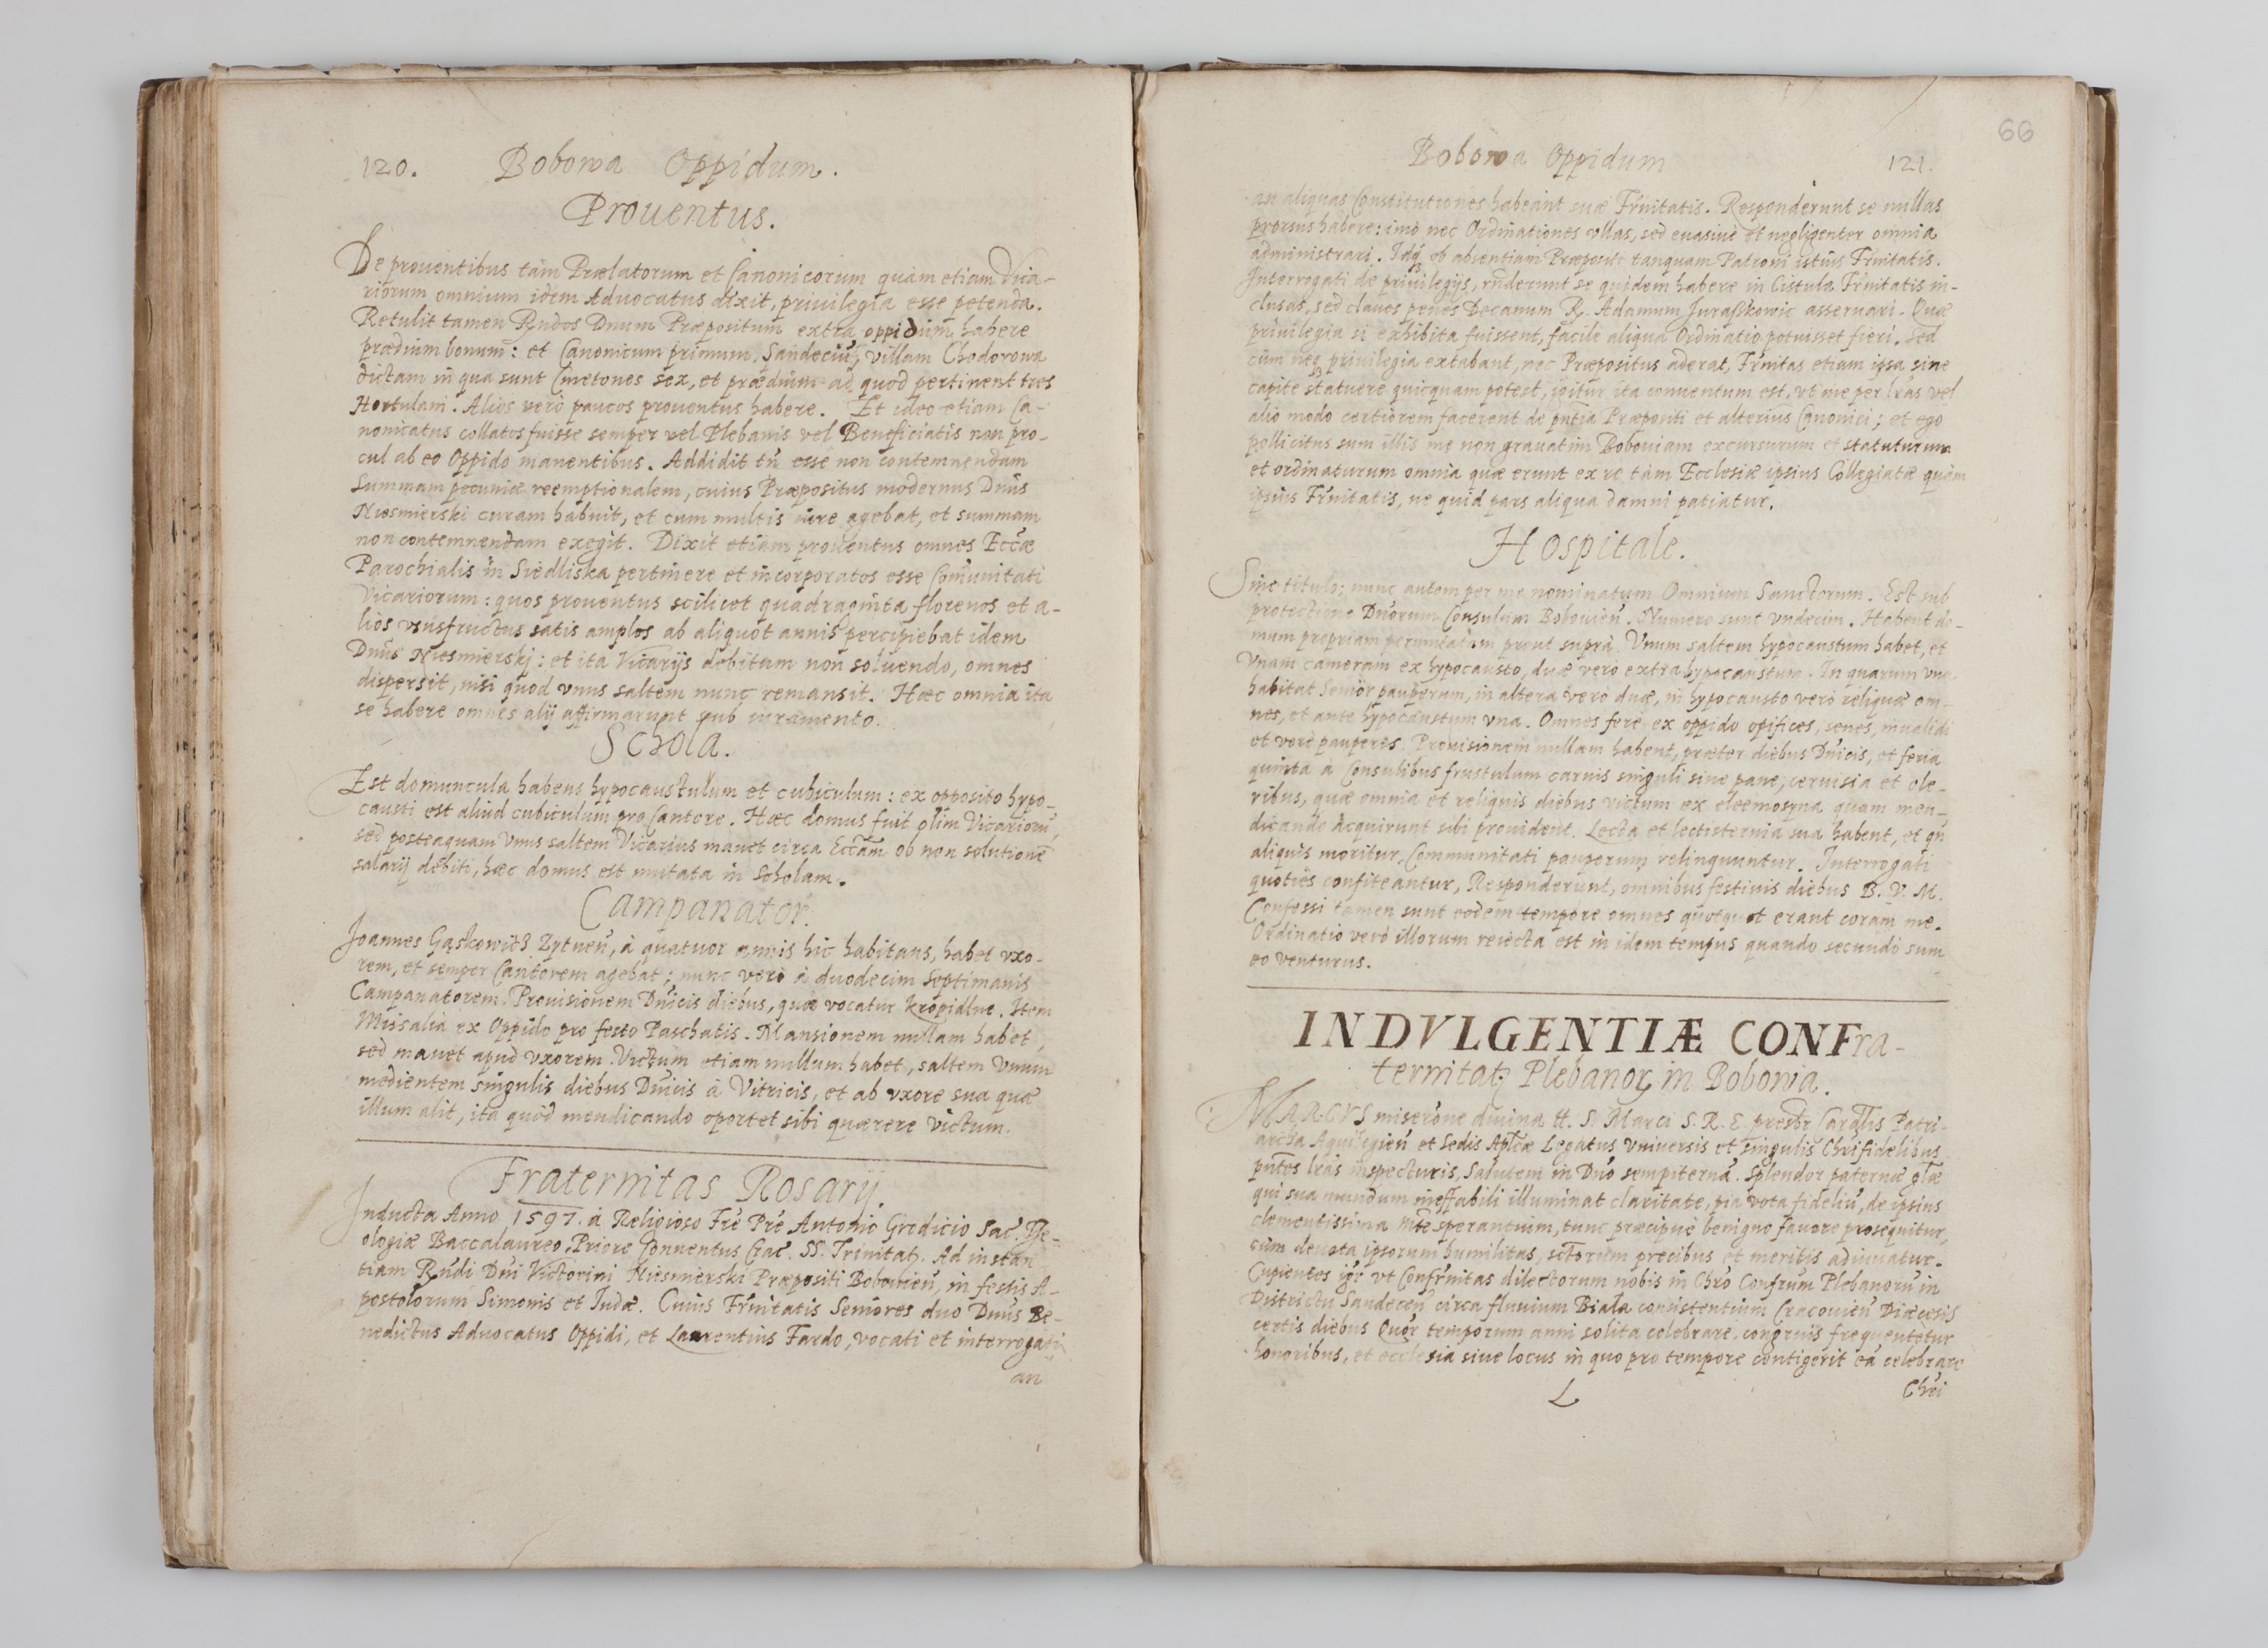 120. Bobowa Oppidum.
Prouentus.
De prouentibus tàm Prælatorum et Canonicorum quàm etiam Vica-
riorum omnium idem Aduocatus dixit, priuilegia esse petenda.
Retulit tamen Rndos Dnum Præpositum extra oppidum habere
prædium bonum: et Canonicum primum, Sandeciū, villam Chodorowa
dictam in qua sunt Cmetones sex, et prædium ad quod pertinent tres
Hortulani. Alios verò paucos prouentus habere. Et ideo etiam Ca-
nonicatus collatos fuisse semper vel Plebanis vel Beneficiatis non pro-
cul ab eo Oppido manentibus. Addidit tn̄ esse non contemnendam
summam pecuniæ reemptionalem, cuius Præpositus modernus Dn̄us
Niesmierski curam habuit, et cum multis iure agebat, et summam
non contemnendam exegit. Dixit etiam prouentus omnes Eccæ
Parochialis in Siedliska pertinere et incorporatos esse Com̄unitati
Vicariorum: quos prouentus scilicet quadraginta florenos et a-
lios vsusfructus satis amplos ab aliquot annis percipiebat idem
Dn̄us Niesmierski: et ita Vicarijs debitum non soluendo, omnes
dispersit, nisi quod vnus saltem nunc remansit. Hæc omnia ita
se habere omnes alij affirmarunt sub iuramento.
Schola.
Est domuncula habens hypocaustulum et cubiculum: ex opposito hypo-
causti est aliud cubiculum pro Cantore. Hæc domus fuit olim Vicariorū,
sed posteaquam Vnus saltem Vicarius manet circa Eccām ob non solutionē
salarij debiti, hæc domus est mutata in Scholam.
Campanator.
Joannes Gąskowicz Zytnen̄, à quatuor annis hic habitans, habet vxo-
rem, et semper Cantorem agebat; nunc verò à duodecim septimanis
Campanatorem. Prouisionem Dn̄icis diebus, quæ vocatur kropidlne. Item
Missalia ex Oppido pro festo Paschatis. Mansionem nullam habet,
sed manet apud vxorem. Victum etiam nullum habet, saltem Vnum
medientem singulis diebus Dn̄icis à Vitricis, et ab vxore sua quæ
illum alit, ita quòd mendicando oportet sibi quærere victum.
Fraternitas Rosarij.
Inducta Anno 1597. à Religioso Frē Prē Antonio Gredicio Sac. The-
ologiæ Baccalaureo, Priore Conuentus Crac. SS. Trinitat. Ad instan
tiam Rn̄di Dn̄i Victorini Niesmierski Præpositi Bobouien̄, in festis A-
postolorum Simonis et Judæ. Cuius Frn̄itatis Seniores duo Dn̄us Be-
nedictus Aduocatus Oppidi, et Laurentius Fardo, vocati et interrogati
an
66
Bobowa Oppidum 121.
an aliquas Constitutiones habeant suæ Frn̄itatis. Responderunt se nullas
prorsus habere: imò nec Ordinationes vllas, sed euasiuè et negligenter omnia
administrari. Idq; ob absentiam Præpositi tanquam Patroni istius Frn̄itatis.
Interrogati de priuilegijs, rn̄derunt se quidem habere in Cistula Frn̄itatis in-
clusas, sed claues penes Decanum R. Adamum Juraszkowic asseruari. Quæ
priuilegia si exhibita fuissent, facile aliqua Ordinatio potuisset fieri. Sed
cùm neq; priuilegia extabant, nec Præpositus aderat, Frn̄itas etiam ipsa sine
capite statuere quicquam potest, igitur ita conuentum est, vt me per lrās vel
alio modo certiorem facerent de pn̄tia Præpositi et alterius Canonici; et ego
pollicitus sum illis me non grauatim Boboviam excursurum et statuturum
et ordinaturum omnia quæ erunt ex re tàm Ecclesiæ ipsius Collegiatæ quàm
ipsius Frn̄itatis, ne quid pars aliqua damni patiatur.
Hospitale.
Sine titulo; nunc autem per me nominatum Omnium Sanctorum. Est sub
protectione Duorum Consulum Bobouien̄. Numero sunt vndecim. Habent do-
mum propriam prout suprà. Vnum saltem hypocaustum habet, et
Vnam cameram ex hypocausto, duæ verò extra hypocaustum. In quarum vna
habitat Senior pauperum, in altera verò duæ, in hypocausto verò reliquæ om-
nes, et ante hypocaustum vna. Omnes ferè ex oppido opifices, senes, inualidi
et verè pauperes. Prouisionem nullam habent, præter diebus Dn̄icis, et feria
quinta à Consulibus frustulum carnis singuli sine pane, ceruisia et ole-
ribus, quæ omnia et reliquis diebus victum ex eleemosyna quam men-
dicando acquirunt sibi prouident. Lecta et lectisternia sua habent, et qn̄
aliquis moritur, Communitati pauperum relinquuntur. Interrogati
quoties confiteantur, Responderunt, omnibus festiuis diebus B. V. M.
Confessi tamen sunt eodem tempore omnes quotquot erant coram me.
Ordinatio verò illorum reiecta est in idem tempus quando secundò sum
eo venturus.
INDVLGENTIÆ CONFra-
ternitat; Plebanor; in Bobowa.
MARCVS miserōne diuina tt. S. Marci S. R. E. presbr Cardlis Patri-
archa Aquilegien̄ et Sedis Aplicæ Legatus Vniuersis et singulis Chrifidelibus
pn̄tes lrās inspecturis, Salutem in Dn̄o sempiternā. Splendor paternæ glæ
qui sua mundum ineffabili illuminat claritate, pia vota fideliū, de ipsius
clementissima Mte sperantium, tunc præcipuè benigno fauore prosequitur,
cùm deuota ipsorum humilitas, sctorum precibus et meritis adiuuatur.
Cupientes igr vt Confrn̄itas dilectorum nobis in Chrō Confrum Plebanorū in
Districtu Sandecen̄ circa fluuium Biala consistentium Cracouien̄ Diæcesis
certis diebus Quor temporum anni solita celebrare, congruis frequentetur
honoribus, et ecclesia siue locus in quo pro tempore contigerit eā celebrare
L Chri